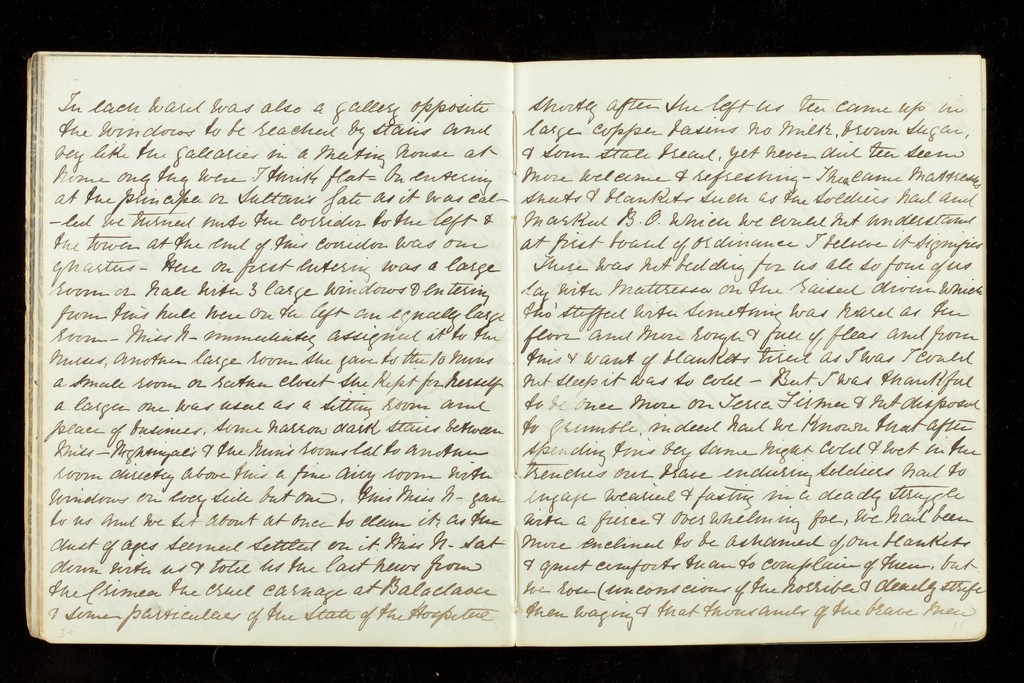 In each ward was also a gallery opposite
the windows to be reached by stairs and
very like the galleries in a meeting house at
home only they were I think flat. On entering
at the principe or Sultan's Gate as it was cal-
-led we turned into the corridor to the left &
the tower at the end of this corridor was our
quarters - Here on first entering was a large
room or hall with 3 large windows & entering
from this hall were on the left an equally large
room - Miss N - immediately assigned it to the
Nurses, another large room she gave to the 10 Nuns
a small room or rather closet she kept for herself
a larger one was used as a sitting room and
place of business. Some narrow dark stairs between
Miss - Nightingale's & the Nuns rooms led to another
room directly above this a fine airy room with
windows on every side but one. This Miss N - gave
to us and we set about at once to clean it, as the
dust of ages seemed settled on it. Miss N - sat
down with us & told us the last news from
the Crimea the cruel carnage at Balaclava
& some particulars of the State of the Hospital
shortly after she left us tea came up in
large copper basens no milk, brown sugar,
& sour stale bread, yet never did tea seem
more welcome & refreshing - Then came mattresses
sheets & blankets such as the soldiers had and
marked B.O. which we could not understand
at first board of ordinance I believe it signifies
There was not bedding for us all so four of us
lay with mattresses on the raised divan which
tho' stuffed with something was hard as the
floor and more rough & full of fleas and from
this & want of blankets tired as I was I could
not sleep it was so cold - But I was thankful
to be once more on Terra Firma & not disposed
to grumble, indeed had we known that after
spending this very same night cold & wet in the
trenches our brave enduring soldiers had to
engage wearied & fasting in a deadly struggle
with a fierce & overwhelming foe, we had been
more enclined to be ashamed of our blankets
& quiet comforts than to complain of them, but
we rose (unconscious of the horrible & deadly strife
then waging & that thousands of the brave men